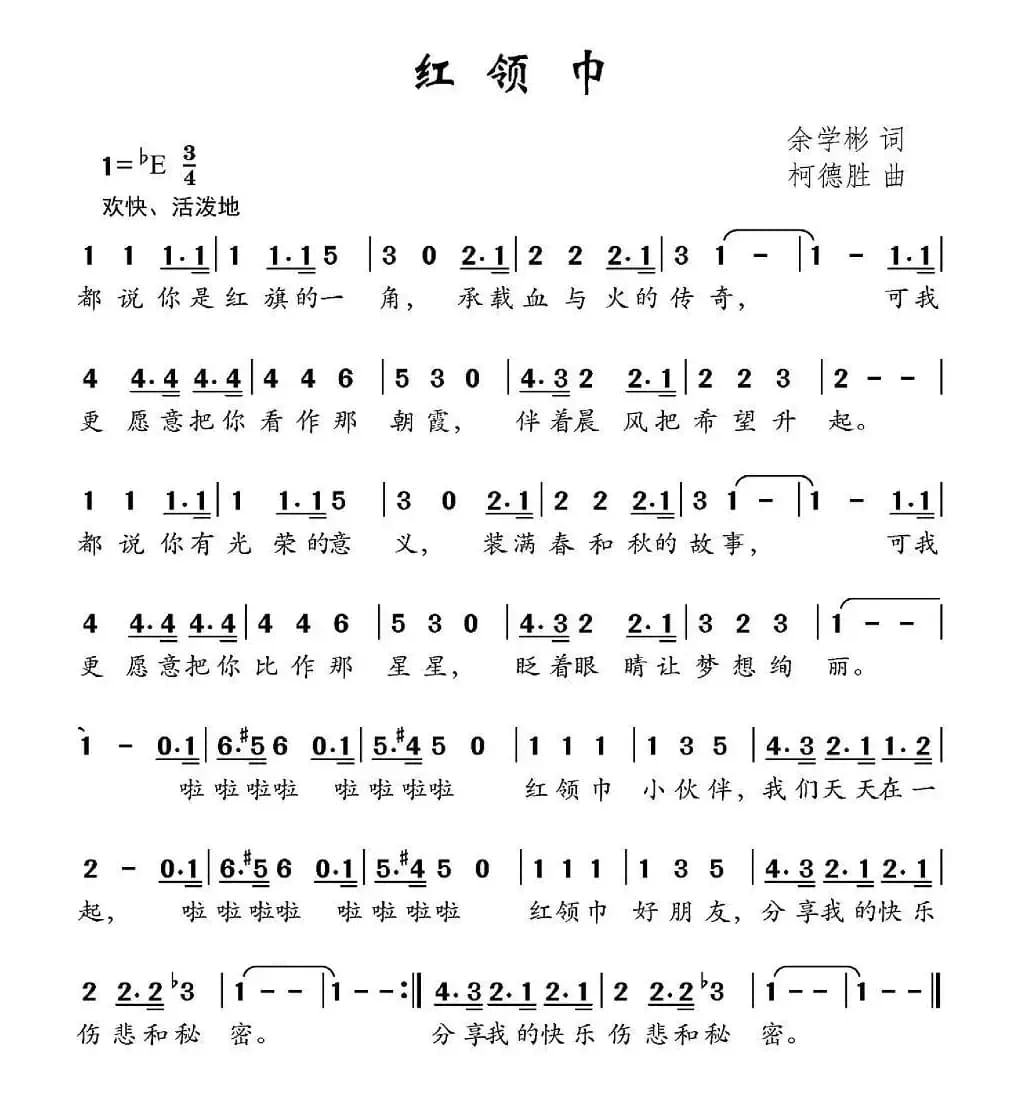 红领巾
余学彬 词
1=♭E 3/4
柯德胜 曲
欢快、活泼地
1 1 1.1|1 1.1 5 |3 0 2.1|2 2 2.1|3 1 -|1 - 1.1|
都说你是红旗的一角，承载血与火的传奇，可我
4 4.4 4.4|4 4 6 |5 3 0 |4.3 2 2.1|2 2 3 |2 - -|
更愿意把你看作那朝霞，伴着晨风把希望升起。
1 1 1.1|1 1.1 5 |3 0 2.1|2 2 2.1|3 1 -|1 - 1.1|
都说你有光荣的意义，装满春和秋的故事，可我
4 4.4 4.4|4 4 6 |5 3 0 |4.3 2 2.1|3 2 3 |1 - -|
更愿意把你比作那星星，眨着眼睛让梦想绚丽。
1 - 0.1|6.♯5 6 0.1|5.♯4 5 0 |1 1 1 |1 3 5 |4.3 2.1 1.2|
啦啦啦啦 啦啦啦啦 红领巾 小伙伴，我们天天在一
2 - 0.1|6.♯5 6 0.1|5.♯4 5 0 |1 1 1 |1 3 5 |4.3 2.1 2.1|
起，啦啦啦啦 啦啦啦啦 红领巾 好朋友，分享我的快乐
2 2.2 ♭3 |1 - -|1 - -:‖4.3 2.1 2.1|2 2.2 ♭3 |1 - -|1 - -‖
伤悲和秘密。 分享我的快乐伤悲和秘密。